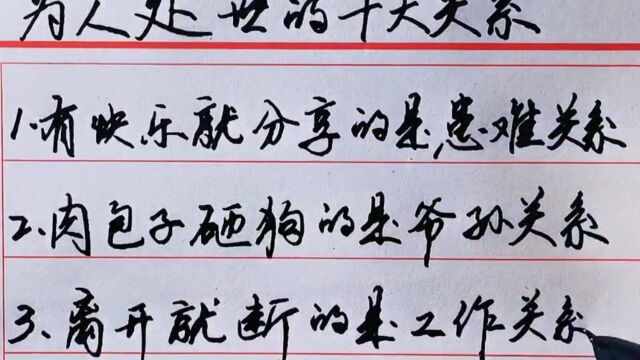 为人处世的十大关系
1.有快乐就分享的是患难关系
2、肉包子砸狗的是爷孙关系
3、离开就断的是工作关系